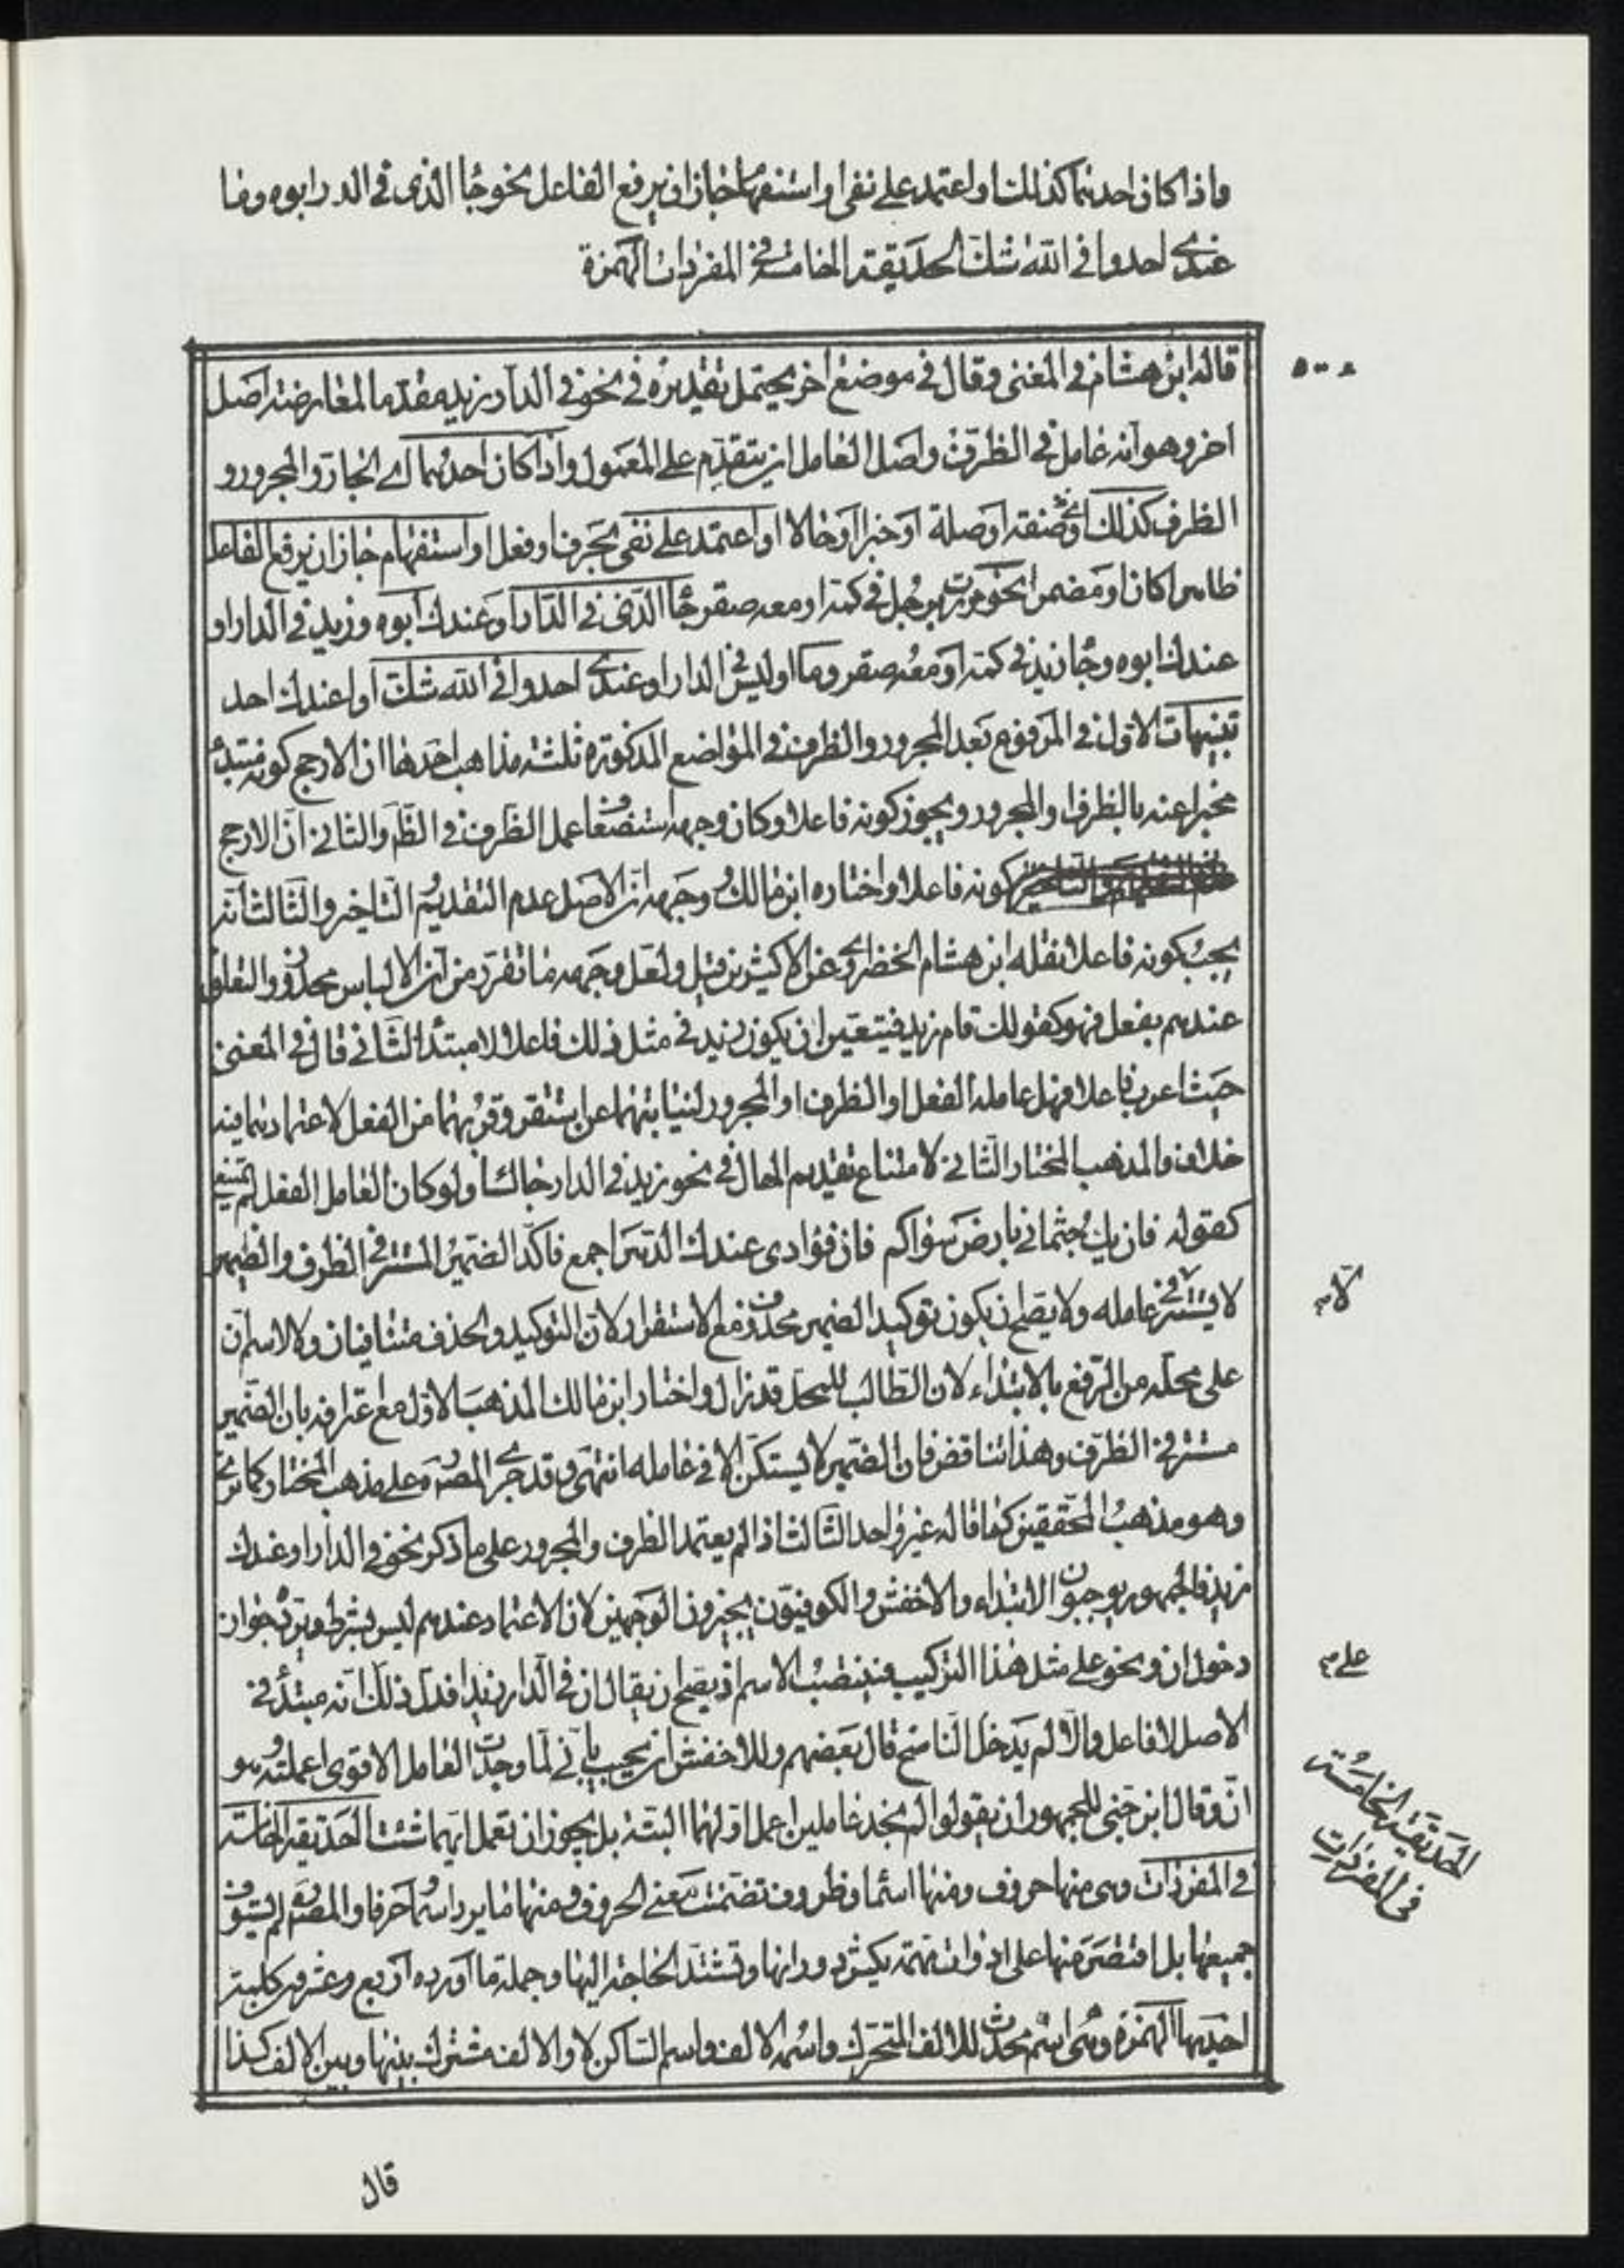 واذا كان احدهما كذلك او اعتمد على نفى او استفهام جاز ان يرفع الفاعل نحو جاا الذى فى الدار ابوه وما
عندى احد وا فى الله شك الحديقة الخامسة فى المفردات الهمزة
قاله ابن هشام فى المغنى وقال فى موضع اخر يحتمل تقديره فى نحو فى الدار زيد مقدما لمعارضته اصل
اخر وهو انه عامل فى الظرف واصل العامل ان يتقدم على المعمول واذا كان احدهما اى الجار والمجرور و
الظرف كذلك اى صفة او صلة او خبرا او حالا او اعتمد على نفى بحرف او فعل او استفهام جاز ان يرفع الفاعل
ظاهرا كان او مضمرا نحو مررت برجل فى كمه او معه صقر جاا الذى فى الدار او عندك ابوه وزيد فى الدار او
عندك ابوه وجا زيد فى كمه او معه صقر وما او ليس فى الدار او عندى احد وا فى الله شك او اعندك احد
تنبيهات الاول فى المرفوع بعد المجرور والظرف فى المواضع المذكورة ثلثة مذاهب احدها ان الارجح كونه مبتدأ
مخبرا عنه بالظرف او المجرور ويجوز كونه فاعلا وكان وجهه استضعاف عمل الظرف فى الظ والثانى ان الارجح
كونه فاعلا واختاره ابن مالك ووجهه ان الاصل عدم التقديم والتاخير والثالث انه
يجب كونه فاعلا نقله ابن هشام الخضراوى عن الاكثرين قيل ولعل وجهه ما تقرر من ان الالباس محذور والتعلق
عندهم بفعل فهو كقولك قام زيد فيتعين ان يكون زيد فى مثل ذلك فاعلا لا مبتدأ الثانى قال فى المغنى
حيث اعرب فاعلا فهل عامله الفعل او الظرف او المجرور لنيابتهما عن استقر وقربهما من الفعل لاعتمادهما فيه
خلاف والمذهب المختار الثانى لامتناع تقديم الحال فى نحو زيد فى الدار جالسا ولو كان العامل الفعل لم يمتنع
كقوله فان يك جثمانى بارض سواكم فان فؤادى عندك الدهر اجمع فاكد الضمير المستتر فى الظرف والضمير
لا يستتر فى عامله ولا يصلح ان يكون توكيد الضمير محذوف مع الاستقرار لان التوكيد والحذف متنافيان ولا لاسم ان
على محله من الرفع بالابتداء لان الطالب للمحل قد زال واختار ابن مالك المذهب الاول مع اعترافه بان الضمير
مستتر فى الظرف وهذا تناقض فان الضمير لا يستكن الا فى عامله انتهى وقد جرى المص على مذهب المختار كما ترى
وهو مذهب المحققين كما قاله غير واحد الثالث اذا لم يعتمد الظرف والمجرور على ما ذكر نحو فى الدار او عندك
زيد فالجمهور يوجبون الابتداء والاخفش والكوفيون يجيزون الوجهين لان الاعتماد عندهم ليس بشرط ويرده جواز
دخول ان ونحو على مثل هذا التركيب فينتصب الاسم اذ يصلح ان يقال ان فى الدار زيدا فدل ذلك انه مبتدأ فى
الاصل لا فاعل والا لم يدخل الناسخ قال بعضهم وللاخفش ان يجيب بانى لما وجدت العامل الاقوى اعملته وهو
ان وقال ابن جنى للجمهور ان يقولوا لم نجد عاملين اعمل اولهما البتة بل يجوز ان تعمل ايهما شئت الحديقة الخامسة
فى المفردات وهى منها حروف ومنها اسما وظروف تضمنت معنى الحروف ومنها ما يرد اسما وحرفا والمص لم يستوف
جميعها بل اقتصر منها على ادوات مهمة يكثر دورانها وتشتد الحاجة اليها وجملة ما اورده اربع وعشرون كلمة
احديها الهمزة وهى اسم محدث للالف المتحرك واسمه الالف واسم الساكن لا والالف مشترك بينها وبين الالف كذا
٥٠٠
لان م
على م
الحديقة الخامسة
فى المفردات
قال